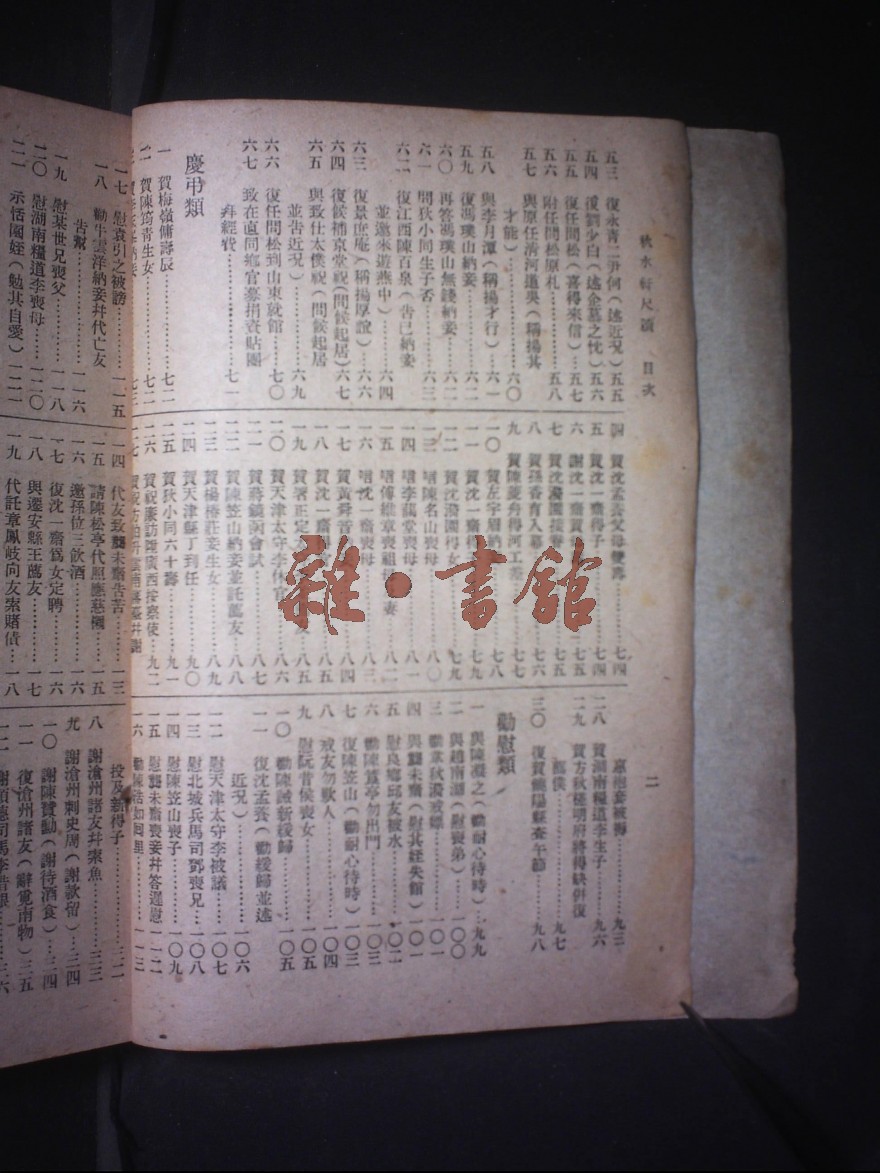 秋水軒尺牘 目次
二
五三 復永青二尹何（述近況）五五
五四 復劉少白（述企慕之忱）五六
五五 復任問松（喜得來信）五七
五六 附任問松原札………五八
五七 與原任清河道吳（稱揚其
才能）………六〇
五八 與李月潭（稱揚才行）…六一
五九 復馮璞山納妾………六二
六〇 再答馮璞山無錢納妾……六二
六一 問狄小同生子否………六三
六二 復江西陳百泉（告已納妾
並邀來遊燕中）………六四
六三 復景庶庵（稱揚厚誼）…六六
六四 復候補京堂祝（問候起居）六七
六五 與致仕太僕祝（問候起居
並告近況）………六九
六六 復任問松到山東就館……七〇
六七 致在直同鄉官募捐資貼團
拜經費………七一
慶弔類
一 賀梅嶺傭壽辰………七二
二 賀陳筠青生女………七二
四 賀沈孟養父母雙壽………七四
五 賀沈一齋得子………七四
六 謝沈一齋賀
七 賀沈潑園
八 賀孫香甫入幕………七六
九 賀陳菱舟得河工
一〇 賀左宇眉納
一一 賀沈一齋得
一二 賀沈潑園得女………七九
一三 唁陳名山喪母………八〇
一四 唁李藹堂喪母
一五 唁傅維章喪祖母
一六 唁沈一齋喪母………八三
一七 賀黃舜音………八四
一八 賀沈一齋
一九 賀署正定
二〇 賀天津太守李休官………八六
二一 賀蔣鏡函會試………八七
二二 賀陳笠山納妾並託薦友…八八
二三 賀楊椿莊妾生女………八九
二四 賀天津縣丁到任………九〇
二五 賀狄小同六十壽………九一
二六 賀祝廉訪調廣西按察使…九二
二八 賀湖南糧道李生子………九六
二九 賀方秋槎明府將得缺併復
薦僕………九七
三〇 復賀饒陽縣查午節………九八
勸慰類
一 與陳凝之（勸耐心待時）…九九
二 與趙南湖（慰喪弟）……一〇〇
三 勸章秋潑戒嫖………一〇一
四 與龔未齋（慰其姪失館）…一〇一
五 慰良鄉邱友被水………一〇二
六 勸陳蓖亭勿出門………一〇三
七 復陳笠山（勸耐心待時）…一〇三
八 戒友勿歌人………一〇四
九 慰阮昔侯喪女………一〇五
一〇 勸陳誠齋緩歸………一〇五
一一 復沈孟養（勸緩歸並述
近況）………一〇六
一二 慰天津太守李被議………一〇七
一三 慰北城兵馬司鄧喪兄……一〇八
一四 慰陳笠山喪子………一〇九
一五 慰龔未齋喪妾幷答遲慰…一一二
一七 慰袁引之被謗………一一五
一八 勸牛雲洋納妾幷代亡友
告幫………一一六
一九 慰某世兄喪父………一一八
二〇 慰湖南糧道李喪母………一二〇
二一 示恬園姪（勉其自愛）…一二一
一四 代友致龔未齋告苦………一三
一五 請陳松亭代照應慈櫬……一五
一六 邀孫位三飲酒………一六
一七 復沈一齋爲女定聘………一六
一八 與遷安縣王薦友………一七
一九 代託章鳳岐向友索賭債…一八
投及新得子………三二
八 謝滄州諸友幷索魚………三三
九 謝滄州刺史周（謝款留）…三四
一〇 謝陳贊勳（謝待酒食）…三四
一一 復滄州諸友（辭覓南物）三五
雜·書館